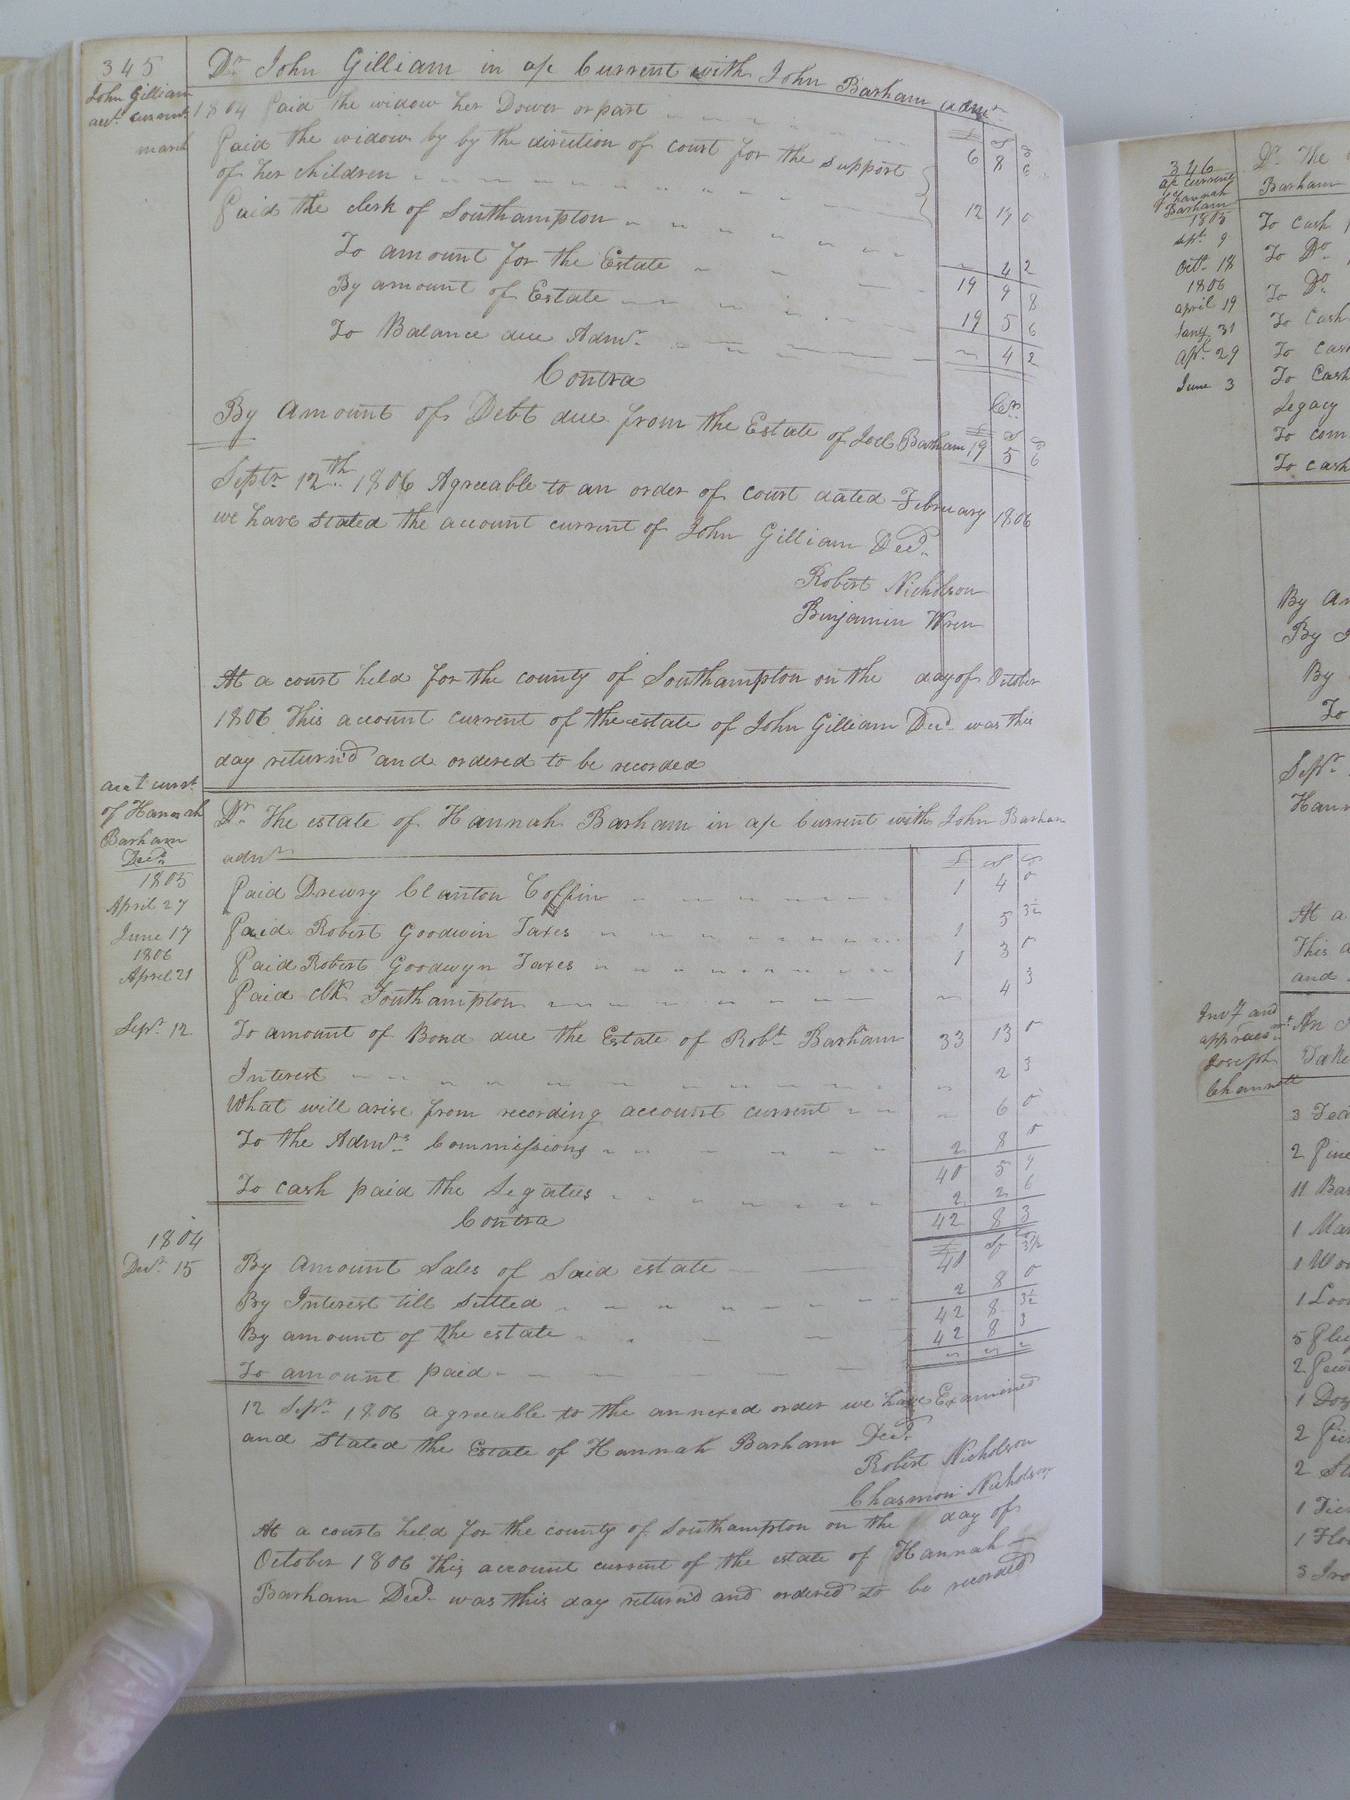 345
John Gilliam
acct. current
march
Dr. John Gilliam in a/c Current with John Barham admr.
1804 Paid the widow her Dower or part
£ S D
6 8 6
Paid the widow by by the direction of court for the support
of her children
12 17 0
Paid the clerk of Southampton
4 2
To amount for the Estate
19 9 8
By amount of Estate
19 5 6
To Balance due Admr.
4 2
Contra
Cr.
£ S D
By Amount of Debt due from the Estate of Joel Barham 19 5 6
Septr. 12th. 1806 Agreeable to an order of court dated February 1806
we have stated the account current of John Gilliam Decd.
Robert Nicholson
Benjamin Wren
At a court held for the county of Southampton on the day of October
1806 This account current of the estate of John Gilliam Decd. was this
day return'd and ordered to be recorded
acct curt.
of Hannah
Barham
Decd.
Dr. The estate of Hannah Barham in a/c Current with John Barham
admr.
£ S D
1805
April 27
Paid Drewry Clanton Coffin 1 4 0
June 17
Paid Robert Goodwin Taxes 1 5 3½
1806
April 21
Paid Robert Goodwyn Taxes 1 3 0
Paid clk Southampton 4 3
Sepr. 12
To amount of Bond due the Estate of Robt. Barham 33 13 0
Interest 2 3
What will arise from recording account current 6 0
To the Admrs. Commissions 2 8 0
40 5 9
To cash paid the Legatees 2 2 6
42 8 3
Contra
£ S D
1804
Decr. 15
By Amount Sales of Said estate 40 3½
By Interest till settled 2 8 0
42 8 3½
By amount of the estate 42 8 3
To amount paid
12 Sepr. 1806 agreeable to the annexed order we have Examined
and stated the Estate of Hannah Barham Decd.
Robert Nicholson
Nicholson
At a court held for the county of Southampton on the day of
October 1806 this account current of the estate of Hannah
Barham Decd. was this day return'd and ordered to be recorded
346
a/c current
of Hannah
Barham
1805
Sept. 9
Octr. 18
1806
april 19
Jany 31
Apl. 29
June 3
Dr. The
Barham
To Cash
To Do.
To Do.
To Cash
To Cash
To Cash
Legacy
To com
To cash
By Am
By
By
To
Sepr.
Hann
At a
This a
and
Invy and
appraesmt
Joseph
Channell
An
Take
3
2
11
1
1
1
5
2
1
2
2
1
1
3